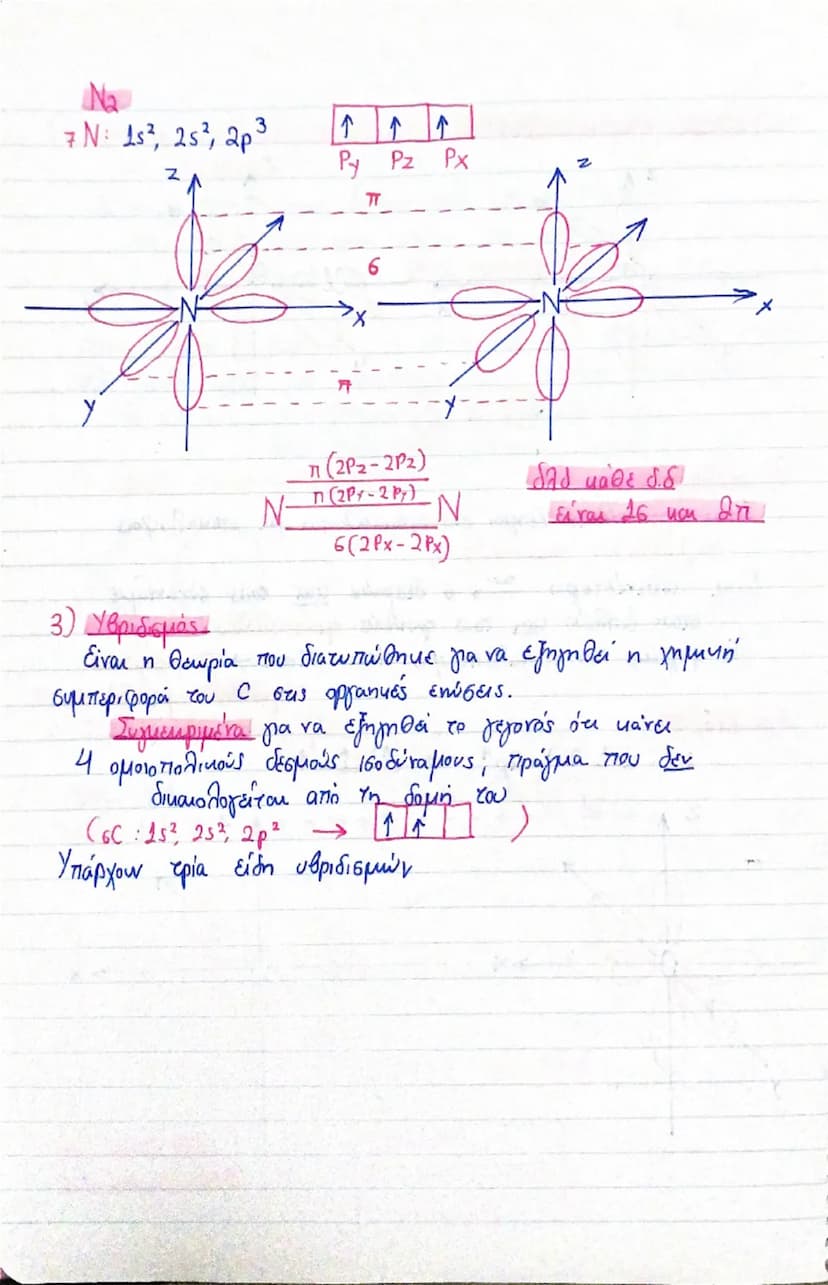 N2
7N: 1s², 2s², 2p³
↑ ↑ ↑
Py Pz Px
z z
π
σ
N x N x
π
y y
π(2Pz-2Pz)
π(2Py-2Py)
N N
σ(2Px-2Px)
δλδ κάθε δ.δ
είναι 1σ και 2π
3) Υβριδισμός
Είναι η θεωρία που διατυπώθηκε για να εξηγηθεί η χημική
συμπεριφορά του C στις οργανικές ενώσεις.
Συγκεκριμένα για να εξηγηθεί το γεγονός ότι κάνει
4 ομοιοπολικούς δεσμούς ισοδύναμους, πράγμα που δεν
δικαιολογείται από τη δομή του
(6C: 1s², 2s², 2p² → ↑ ↑ )
Υπάρχουν τρία είδη υβριδισμών